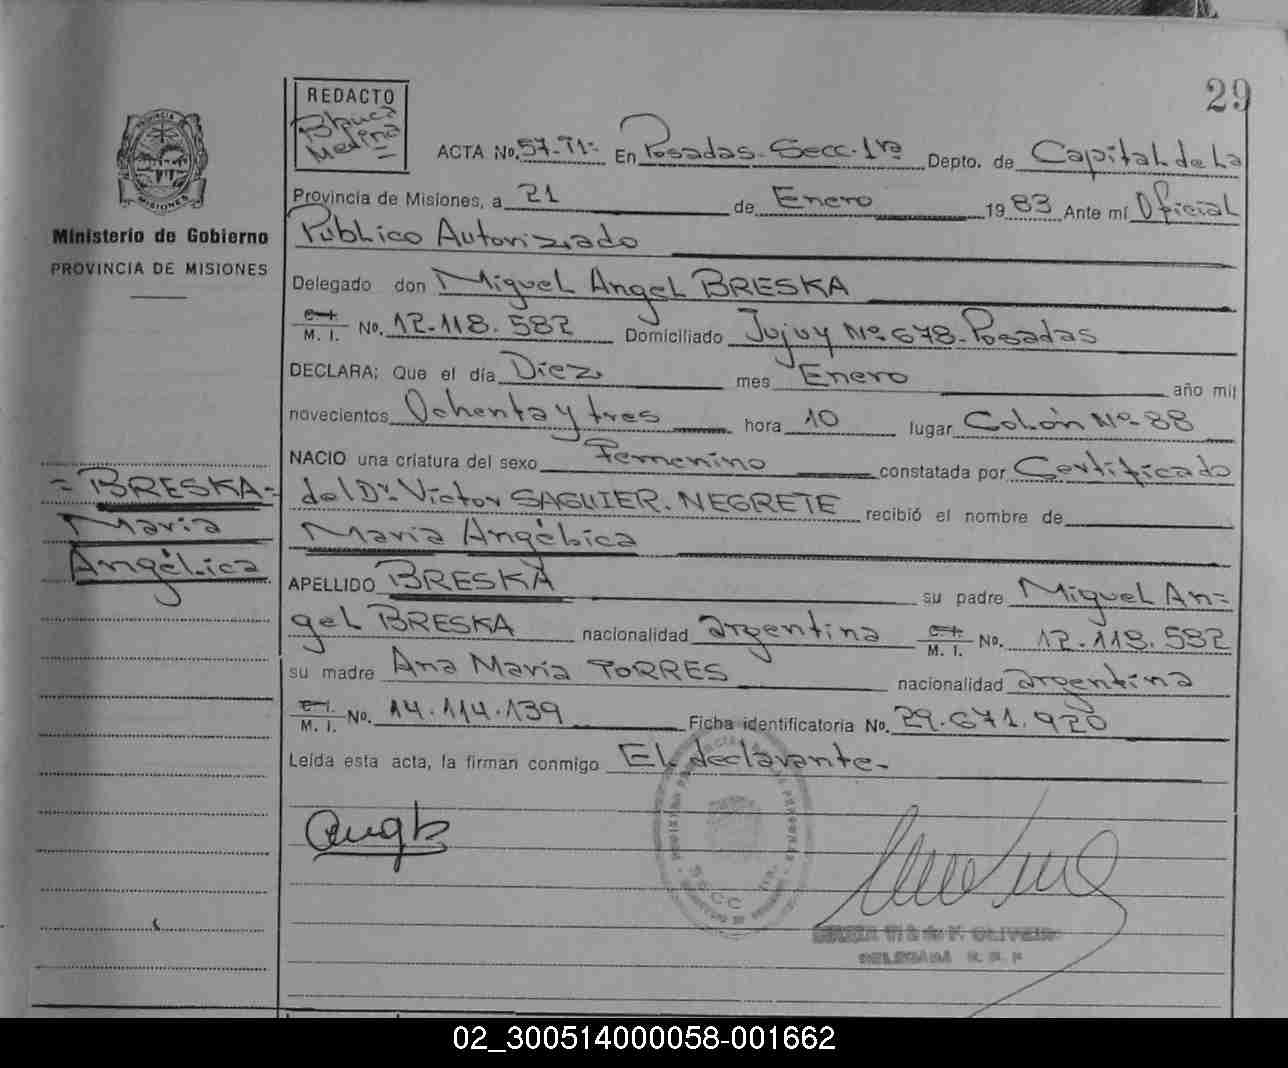 29
REDACTO
Medina
ACTA No. 57-T1- En Posadas-Secc. 1ra Depto. de Capital de La
Provincia de Misiones, a 21 de Enero 1983 Ante mí Oficial
Público Autorizado
Delegado don Miguel Angel BRESKA
M. I. No. 12.118.582 Domiciliado Jujuy Nº 678-Posadas
DECLARA: Que el día Diez mes Enero año mil
novecientos Ochenta y tres hora 10 lugar Colón Nº 88
NACIO una criatura del sexo Femenino constatada por Certificado
del Dr. Víctor SAGUIER. NEGRETE recibió el nombre de
María Angélica
APELLIDO BRESKA su padre Miguel An=
gel BRESKA nacionalidad argentina M. I. No. 12.118.582
su madre Ana María TORRES nacionalidad argentina
M. I. No. 14.114.139 Ficha identificatoria No. 29.671.920
Leída esta acta, la firman conmigo El declarante-
PROVINCIA
MISIONES
Ministerio de Gobierno
PROVINCIA DE MISIONES
=BRESKA=
María
Angélica
SECC. 1ra.
DELEGADA R. P. P
02_300514000058-001662